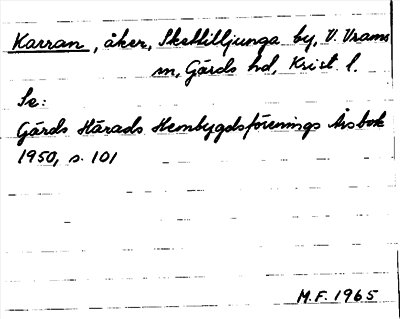 Karran, åker, Skettilljunga by, V. Vrams
sn, Gärds hd, Krist. l.
Se:
Gärds Härads Hembygdsförenings Årsbok
1950, s. 101
M.F. 1965